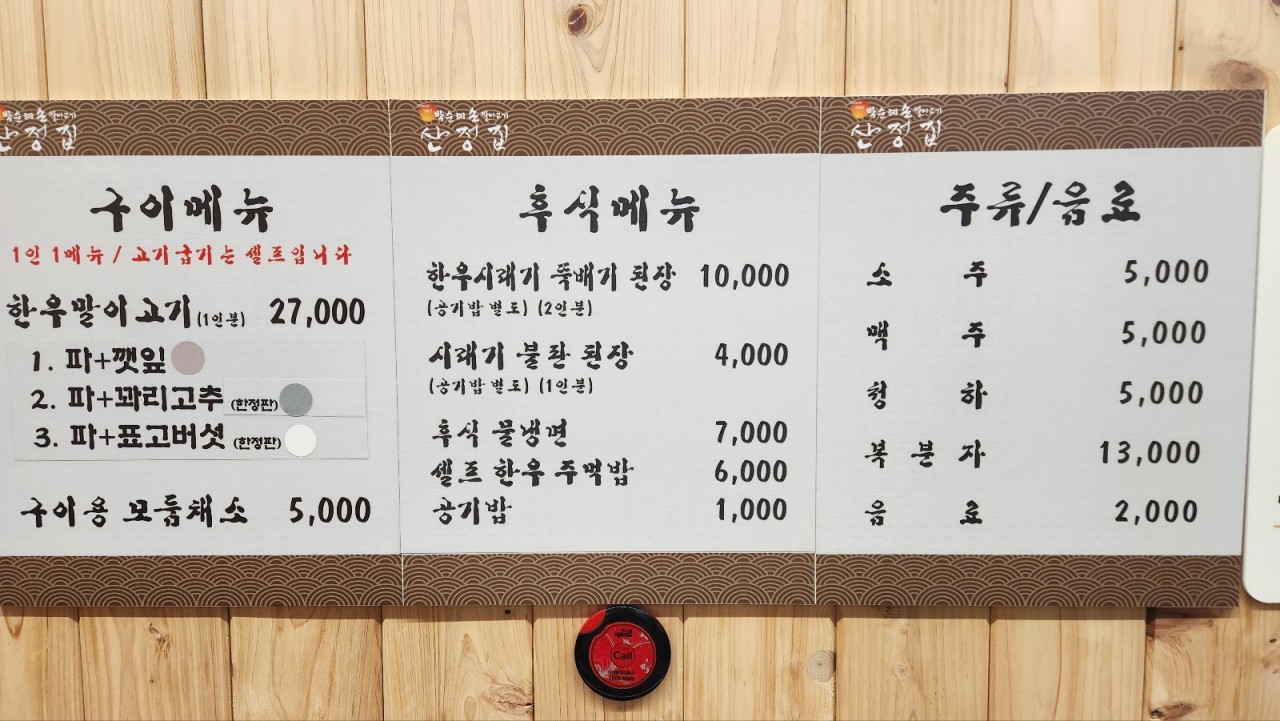 박순례 손 말이고기
산정집
구이메뉴
1인 1메뉴 / 고기굽기는 셀프입니다
한우말이고기(1인분) 27,000
1. 파+깻잎
2. 파+꽈리고추 (한정판)
3. 파+표고버섯 (한정판)
구이용 모둠채소 5,000
박순례 손 말이고기
산정집
후식메뉴
한우시래기 뚝배기 된장 10,000
(공기밥 별도) (2인분)
시래기 불판 된장 4,000
(공기밥 별도) (1인분)
후식 물냉면 7,000
셀프 한우 주먹밥 6,000
공기밥 1,000
박순례 손 말이고기
산정집
주류/음료
소 주 5,000
맥 주 5,000
청 하 5,000
복 분 자 13,000
음 료 2,000
Call